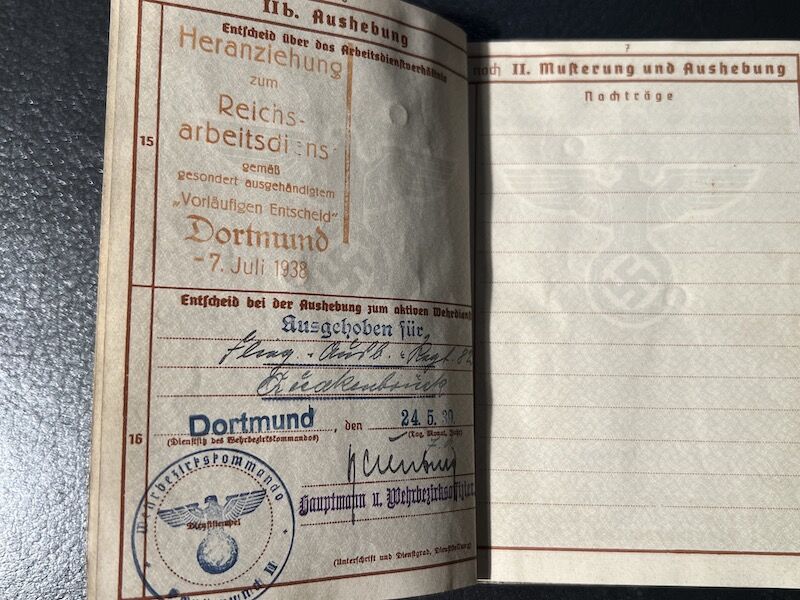 IIb. Aushebung
Entscheid über das Arbeitsdienstverhältnis
15
Heranziehung
zum
Reichs-
arbeitsdiens
gemäß
gesondert ausgehändigtem
„Vorläufigen Entscheid"
Dortmund
-7. Juli 1938
Entscheid bei der Aushebung zum aktiven Wehrdienst
16
Ausgehoben für
Flieg. Ausb. Regt. 82
Quakenbrück
Dortmund, den 24. 5. 39
(Dienstsitz des Wehrbezirkskommandos) (Tag, Monat, Jahr)
Hauptmann u. Wehrbezirksoffizier
Wehrbezirkskommando
Dienststempel
(Unterschrift und Dienstgrad, Dienststellung)
7
noch II. Musterung und Aushebung
Nachträge